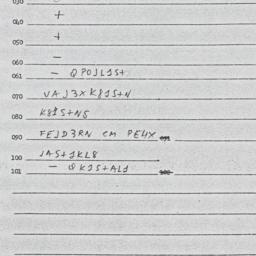 030
040 +
050 +
060 –
061 – QPOJL1S+
070 VAJ3XK81S+N
080 K81S+NS
090 FEJD3RN EM PE4X
100 JAS+1KL8
101 – QK1S+AL1